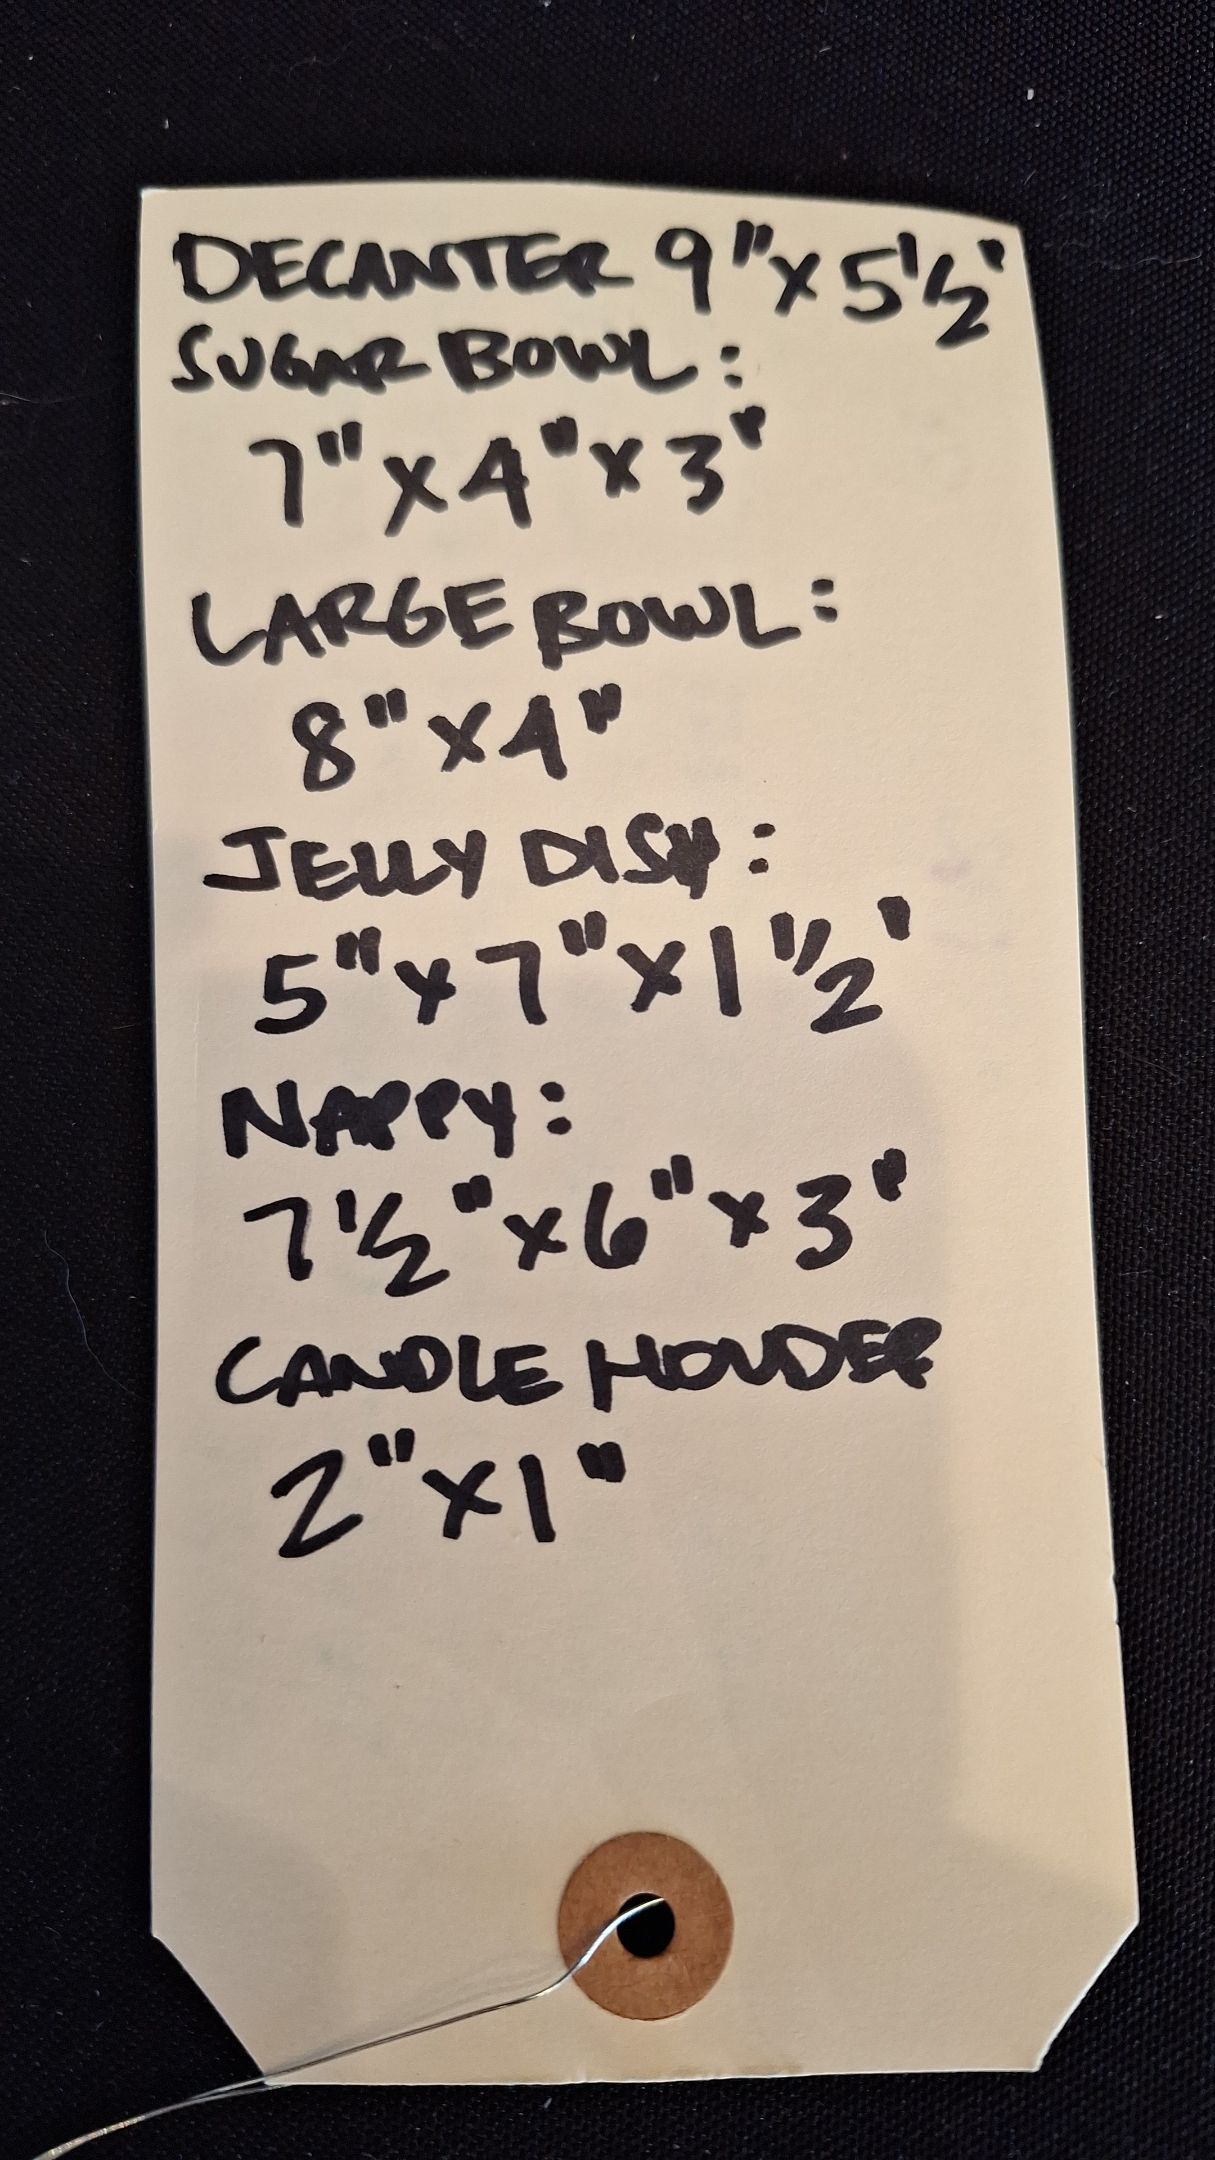 DECANTER 9" x 5 1/2"
SUGAR BOWL:
7" x 4" x 3"
LARGE BOWL:
8" x 4"
JELLY DISH:
5" x 7" x 1 1/2"
NAPPY:
7 1/2" x 6" x 3"
CANDLE HOLDER
2" x 1"